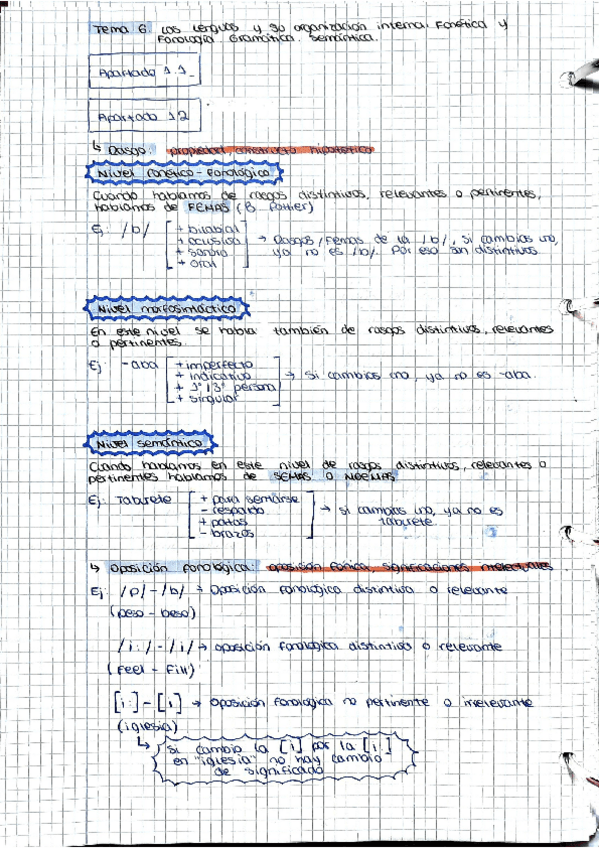 Tema 6: Las lenguas y su organización interna. Fonética y
Fonología. Gramática. Semántica.
Apartado 1.1_
Apartado 1.2
↳ Rasgo: propiedad, constructo hipotético
Nivel fonético-fonológico
Cuando hablamos de rasgos distintivos, relevantes o pertinentes,
hablamos de FEMAS (B. Pottier)
Ej: /b/ [+ bilabial
+ oclusiva
+ sonoro
+ oral
→ Rasgos/Femas de la /b/, si cambias uno,
ya no es /b/. Por eso son distintivos.
Nivel morfosintáctico
En este nivel se habla también de rasgos distintivos, relevantes
o pertinentes.
Ej: -aba [+ imperfecto
+ indicativo
+ 1ª/3ª persona
+ singular
→ Si cambias uno, ya no es -aba.
Nivel semántico
Cuando hablamos en este nivel de rasgos distintivos, relevantes o
pertinentes hablamos de SEMAS O NOEMAS
Ej: Taburete [+ para sentarse
- respaldo
+ patas
- brazos]
→ si cambias uno, ya no es
taburete.
↳ Oposición fonológica: oposición fónica, significaciones intelectuales
Ej: /p/-/b/ → Oposición fonológica distintiva o relevante
(peso - beso)
/i:/-/i/ → oposición fonológica distintiva o relevante
(feel - fill)
[i:]-[i] → Oposición fonológica no pertinente o irrelevante
(iglesia)
↳ Si cambio la [i] por la [i:]
en "iglesia" no hay cambio
de significado